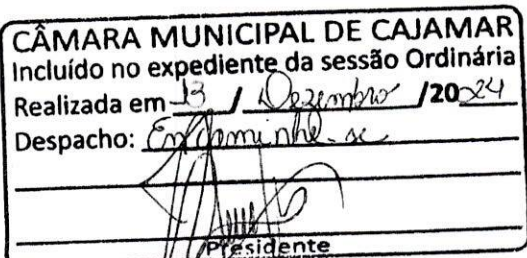 CÂMARA MUNICIPAL DE CAJAMAR
Incluído no expediente da sessão Ordinária
Realizada em 13 / Dezembro /2024
Despacho: Encaminhe-se
Presidente